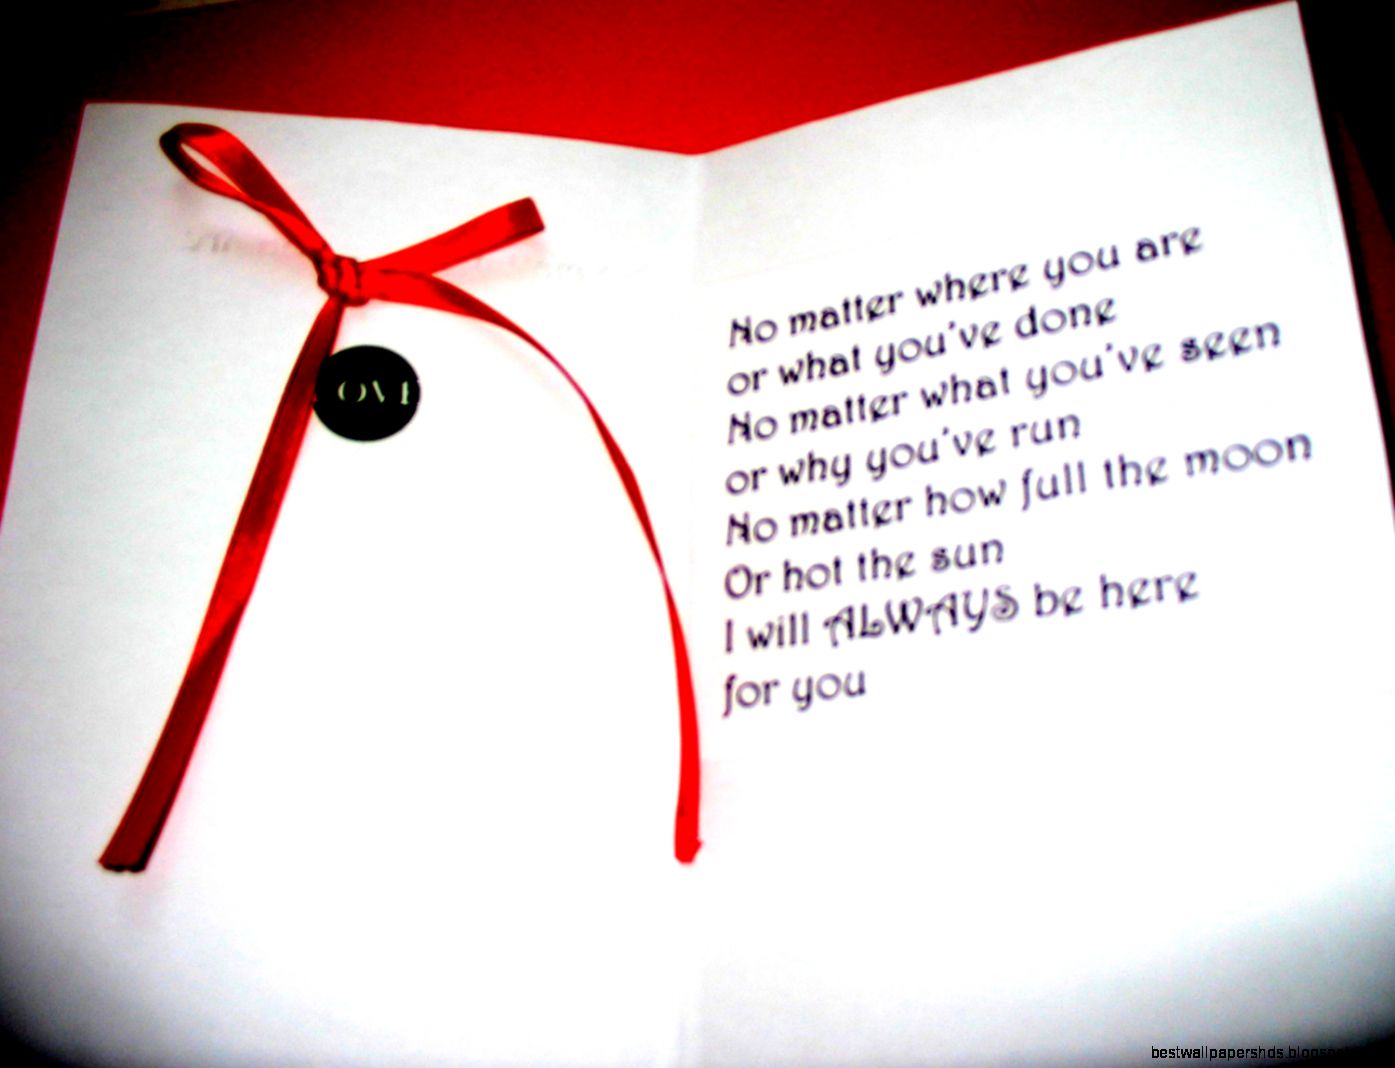 OVE
No matter where you are
or what you've done
No matter what you've seen
or why you've run
No matter how full the moon
Or hot the sun
I will ALWAYS be here
for you
bestwallpapershds.blogspot